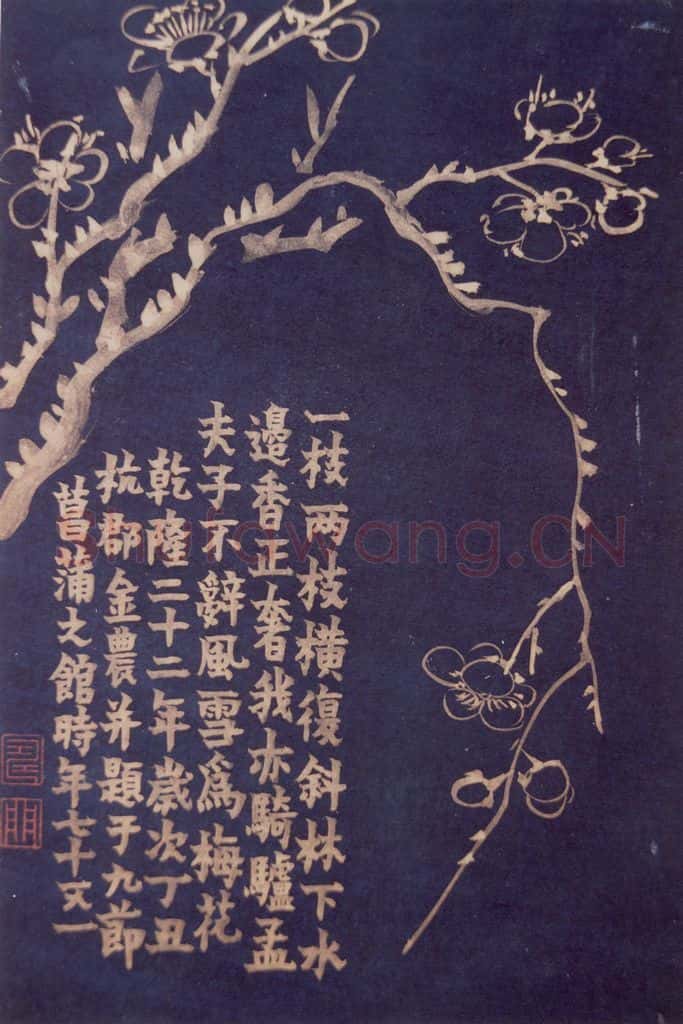 一枝兩枝橫復斜林下水
邊香正奢我亦騎驢孟
夫子不辭風雪為梅花
乾隆二十二年歲次丁丑
杭郡金農并題于九節
菖蒲之館時年七十又一
Shufawang.CN